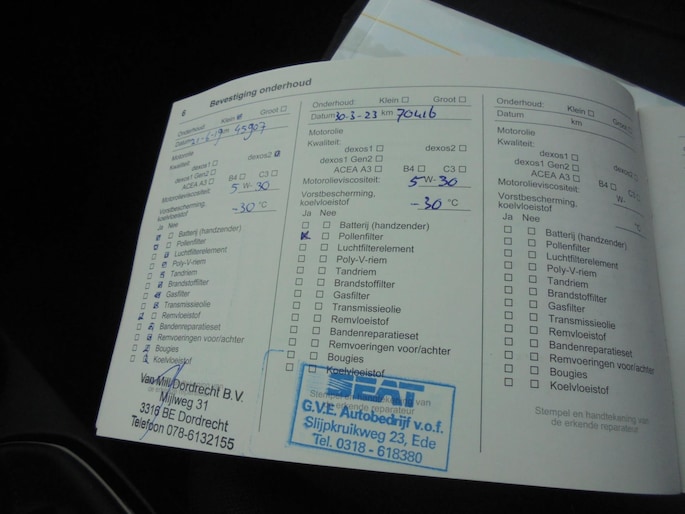 6
Bevestiging onderhoud
Onderhoud: Klein Groot
Datum 21-6-19 km 45907
Motorolie
Kwaliteit:
dexos1 dexos2
dexos1 Gen2
ACEA A3 B4 C3
Motorolieviscositeit: 5 W- 30
Vorstbescherming,
koelvloeistof -30 °C
Ja Nee
Batterij (handzender)
Pollenfilter
Luchtfilterelement
Poly-V-riem
Tandriem
Brandstoffilter
Gasfilter
Transmissieolie
Remvloeistof
Bandenreparatieset
Remvoeringen voor/achter
Bougies
Koelvloeistof
Van Mill Dordrecht B.V.
Mijlweg 31
3316 BE Dordrecht
Telefoon 078-6132155
Onderhoud: Klein Groot
Datum 30-3-23 km 70416
Motorolie
Kwaliteit:
dexos1 dexos2
dexos1 Gen2
ACEA A3 B4 C3
Motorolieviscositeit: 5 W- 30
Vorstbescherming,
koelvloeistof -30 °C
Ja Nee
Batterij (handzender)
Pollenfilter
Luchtfilterelement
Poly-V-riem
Tandriem
Brandstoffilter
Gasfilter
Transmissieolie
Remvloeistof
Bandenreparatieset
Remvoeringen voor/achter
Bougies
Koelvloeistof
Stempel en handtekening van
de erkende reparateur
SEAT
G.V.E. Autobedrijf v.o.f.
Slijpkruikweg 23, Ede
Tel. 0318 - 618380
Onderhoud: Klein Groot
Datum km
Motorolie
Kwaliteit:
dexos1
dexos1 Gen2
ACEA A3 B4 C3
Motorolieviscositeit: W-
Vorstbescherming,
koelvloeistof °C
Ja Nee
Batterij (handzender)
Pollenfilter
Luchtfilterelement
Poly-V-riem
Tandriem
Brandstoffilter
Gasfilter
Transmissieolie
Remvloeistof
Bandenreparatieset
Remvoeringen voor/achter
Bougies
Koelvloeistof
Stempel en handtekening van
de erkende reparateur